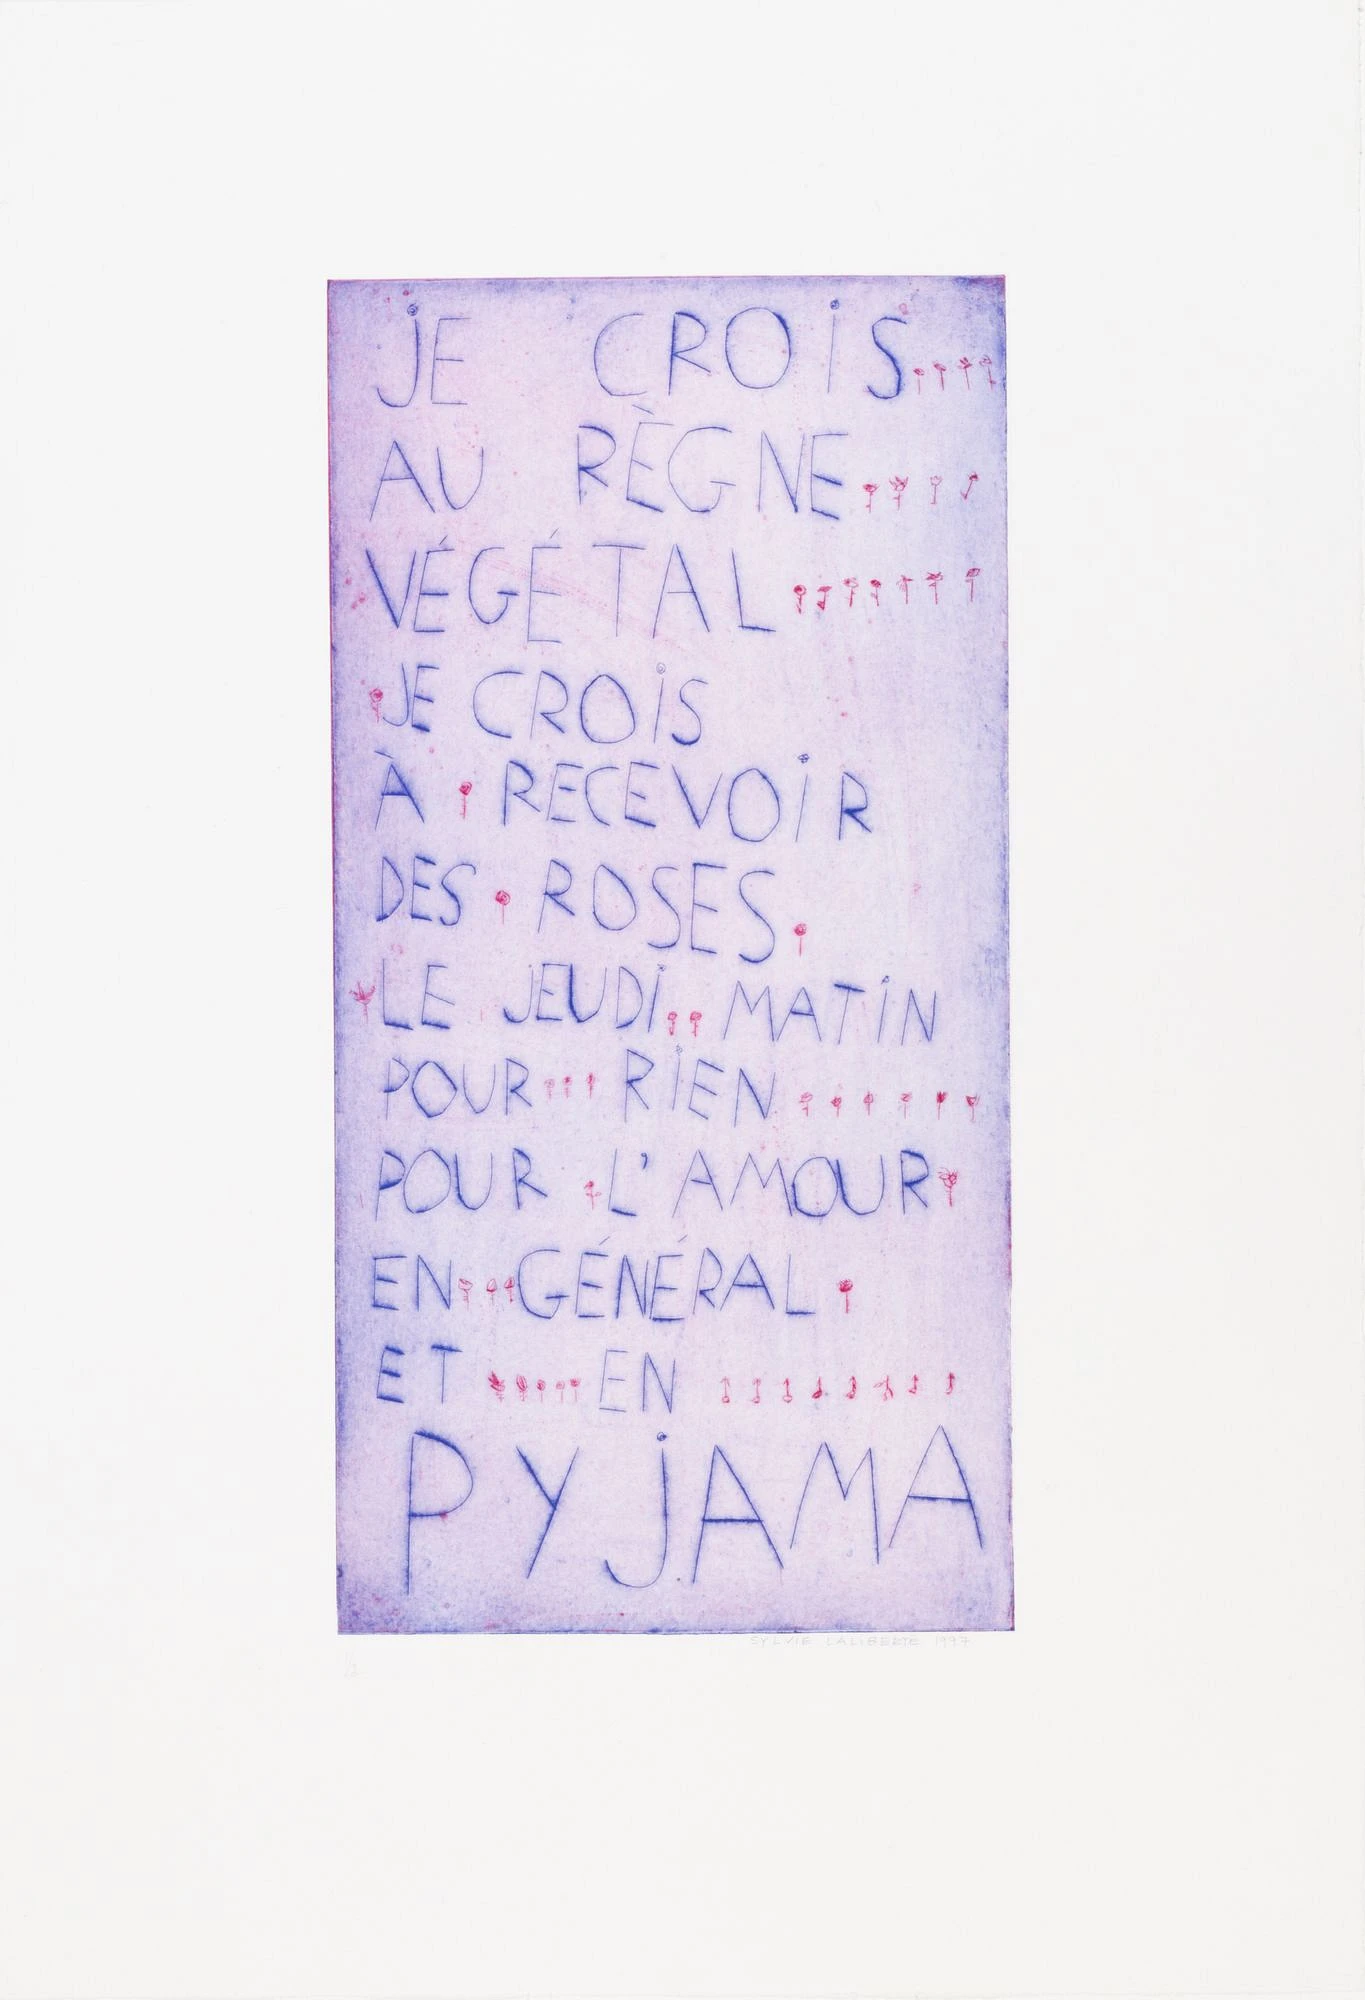 JE CROIS
AU RÈGNE
VÉGÉTAL
JE CROIS
À RECEVOIR
DES ROSES
LE JEUDI MATIN
POUR RIEN
POUR L'AMOUR
EN GÉNÉRAL
ET EN
PYJAMA
SYLVIE LALIBERTE 1997